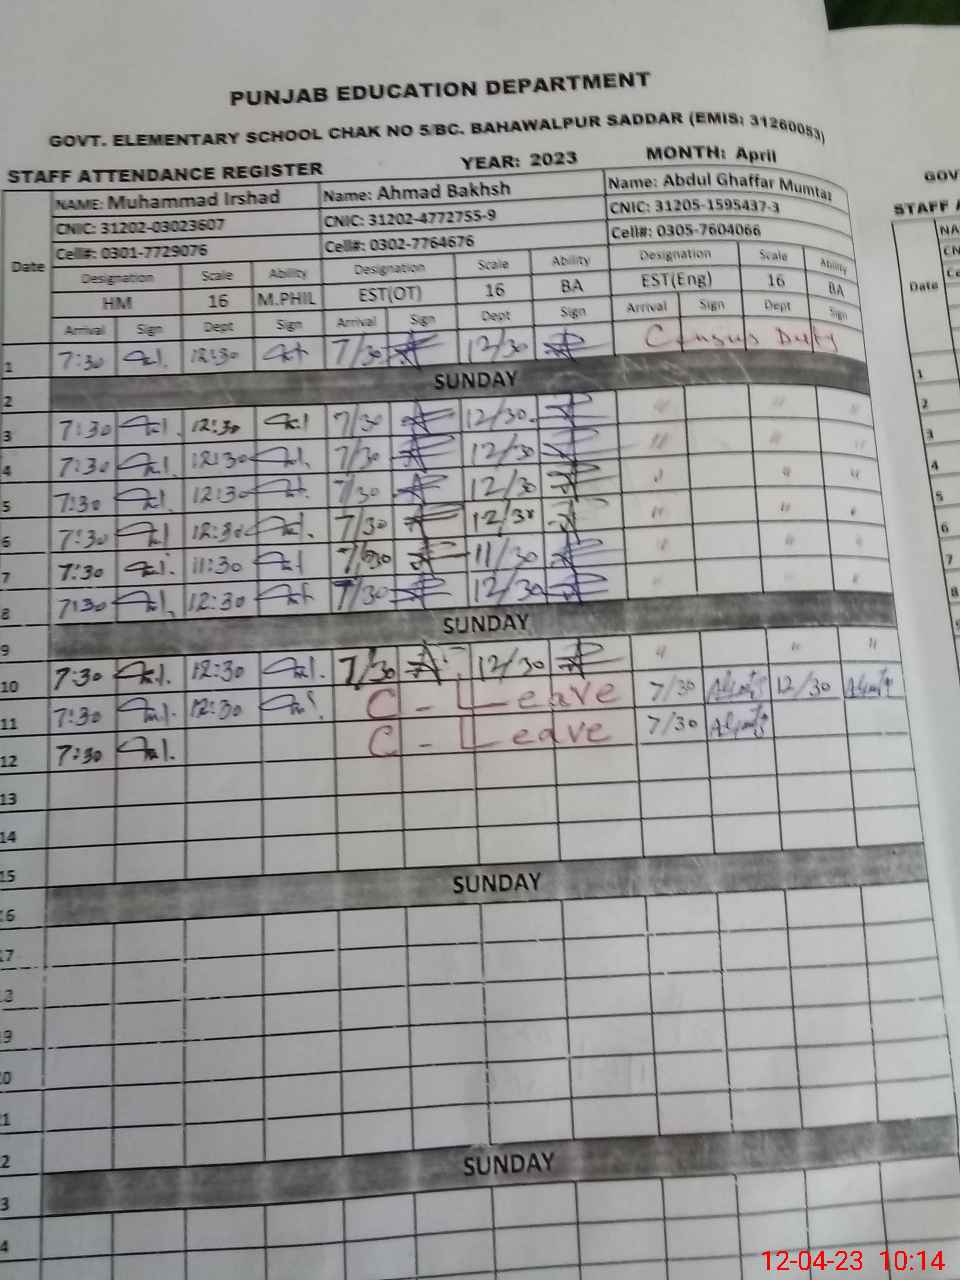 PUNJAB EDUCATION DEPARTMENT
GOVT. ELEMENTARY SCHOOL CHAK NO 5/BC. BAHAWALPUR SADDAR (EMIS: 31260053)
STAFF ATTENDANCE REGISTER YEAR: 2023 MONTH: April
GOV
STAFF A
Date NAME: Muhammad Irshad Name: Ahmad Bakhsh Name: Abdul Ghaffar Mumtaz
CNIC: 31202-03023607 CNIC: 31202-4772755-9 CNIC: 31205-1595437-3
Cell#: 0301-7729076 Cell#: 0302-7764676 Cell#: 0305-7604066
Designation Scale Ability Designation Scale Ability Designation Scale Ability
HM 16 M.PHIL EST(OT) 16 BA EST(Eng) 16 BA
Arrival Sign Dept Sign Arrival Sign Dept Sign Arrival Sign Dept Sign
1 7:30 12:30 7/30 12/30 Census Duty
2 SUNDAY
3 7:30 12:30 7/30 12/30 " " "
4 7:30 12:30 7/30 12/30 " " "
5 7:30 12:30 7/30 12/30 " " "
6 7:30 12:30 7/30 12/30 " " "
7 7:30 11:30 11/30 " " "
8 7:30 12:30 7/30 12/30 "
9 SUNDAY
10 7:30 12:30 7/30 12/30 " " "
11 7:30 12:30 C - Leave 7/30 12/30
12 7:30 C - Leave 7/30
13
14
15
6 SUNDAY
7
8
9
0
1
2
3 SUNDAY
4
NA
CN
Ce
Date
1
2
3
4
5
6
7
8
12-04-23 10:14